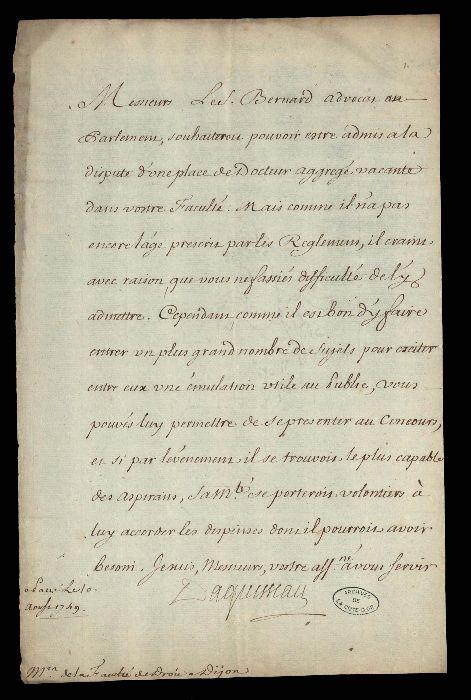 Messieurs Le S. Bernard advocat au
Parlement, souhaiteroit pouvoir entre admis a la
dispute d'une place de Docteur aggregé vacante
dans vostre Faculté. Mais comme il n'a pas
encore l'âge prescrit par les Reglemens, il craint
avec raison que vous ne fassiés difficulté de l'y
admettre. Cependant comme il est bon d'y faire
entrer un plus grand nombre de sujets pour exciter
entre eux une émulation utile au Public, vous
pouvés luy permettre de se presenter au Concours,
et si par l'évenement il se trouvoit le plus capable
des aspirans, sa M.té se porteroit volontiers à
luy accorder les dispenses dont il pourroit avoir
besoin. Je suis, Messieurs, vostre aff.né a vous servir
Daguesseau
a Paris Le 10.
Aoust 1749.
ARCHIVES
DE
LA COTE-D'OR
M.rs de la Faculté de Droit a Dijon